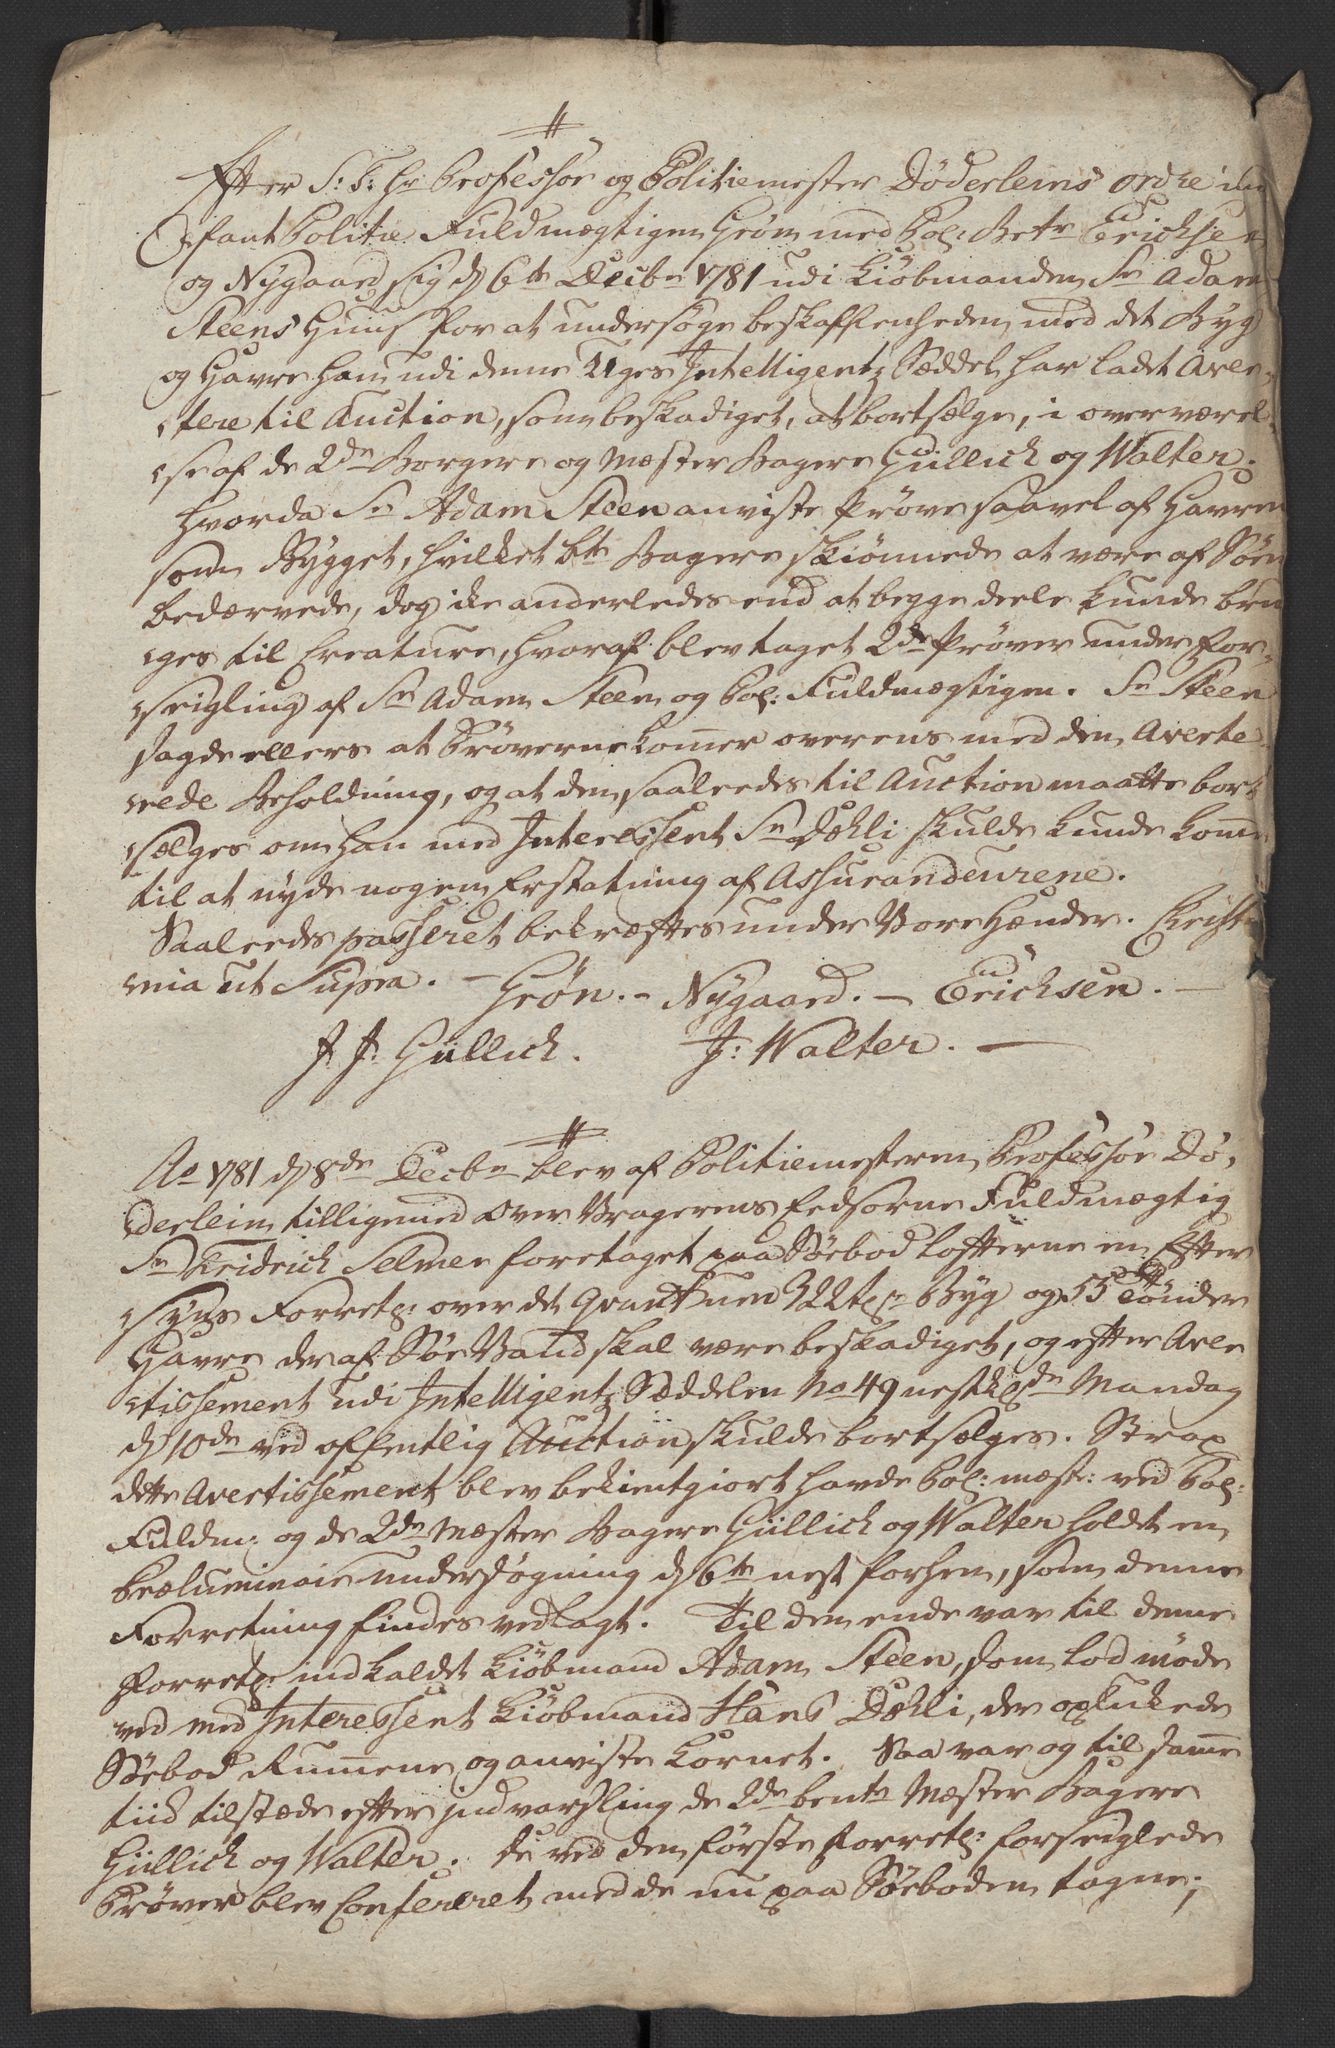 #
Efter S: T: Hr Professor og Politiemester Döderleins ordre ind
fant Politie Fuldmægtigen Grön med Pol: Betr Erichsen
og Nygaard sig d 6te Decbr 1781 udi Kiöbmanden Sr Adam
Steens Huus for at undersöge beskaffenheden med det Byg
og Havre ham udi denne Uges Intelligentz Sæddel har ladet Aver-
tere til Auction, som beskadiget, at bortsælge, i overværel-
se af de 2de Borgere og Mæster Bagere Güllich og Walter.
Hvorda Sr Adam Steen anviste Pröve saavel af Havren
som Bygget, hvilket bte Bagere skiönnede at være af Söen
bedærvede, dog ike anderledes end at begge deele kunde bru
ges til Creature, hvoraf blev taget 2de Pröver under For-
seigling af Sr Adam Steen og Pol: Fuldmægtigen. Sr Steen
sagde ellers at Pröverne komer overens med den Averte
rede Beholdning, og at den saaleedes til Auction maatte bort
sælges om han med Interessent Sr Dæhli skulde kunde kome
til at nyde nogen Erstatning af Assurandeurene.
Saaleedes passeret bekræftes under Vore Hænder. Christi
ania ut Supra. - Grön. - Nygaard. - Erichsen. -
J. J: Güllich. J: Walter. -
#
Ao 1781 d 8de Decbr blev af Politiemesteren Professor Dö,
derlein tilligemed Over Vragerens Eedsorne Fuldmægtig
Sr Fridrich Selmer foretaget paa Söebod lofterne en Efter
Syns Forretg: over det Quantum 322 Byg og 55 Tönder
Havre der af Söe Vand skal være beskadiget, og efter Aver
tissement udi Intelligentz Sæddelen No 49 nestk Mandag
d 10de ved offentlig Auction skulde bortsælges. Strax
dette Avertissement blev bekientgiort havde Pol: mest: ved Pol:
Fuldm: og de 2de Mæster Bagere Güllich og Walter holdt en
undersögning d 6te nest forhen, som denne
Forretning findes vedlagt. Til den ende var til denne
Forretg: indkaldet Kiöbmand Adam Steen, som lod möde
ved med Interessent Kiöbmand Hans Dæhli, der oplukede
Söebod Rummene og anviste Kornet. Saa var og til same
tiid tilstæde efter indvarsling de 2de bente Mæster Bagere
Güllich og Walter. De ved den förste Forretg: forseiglede
Pröver blev Confereret med de nu paa Söeboden tagne;